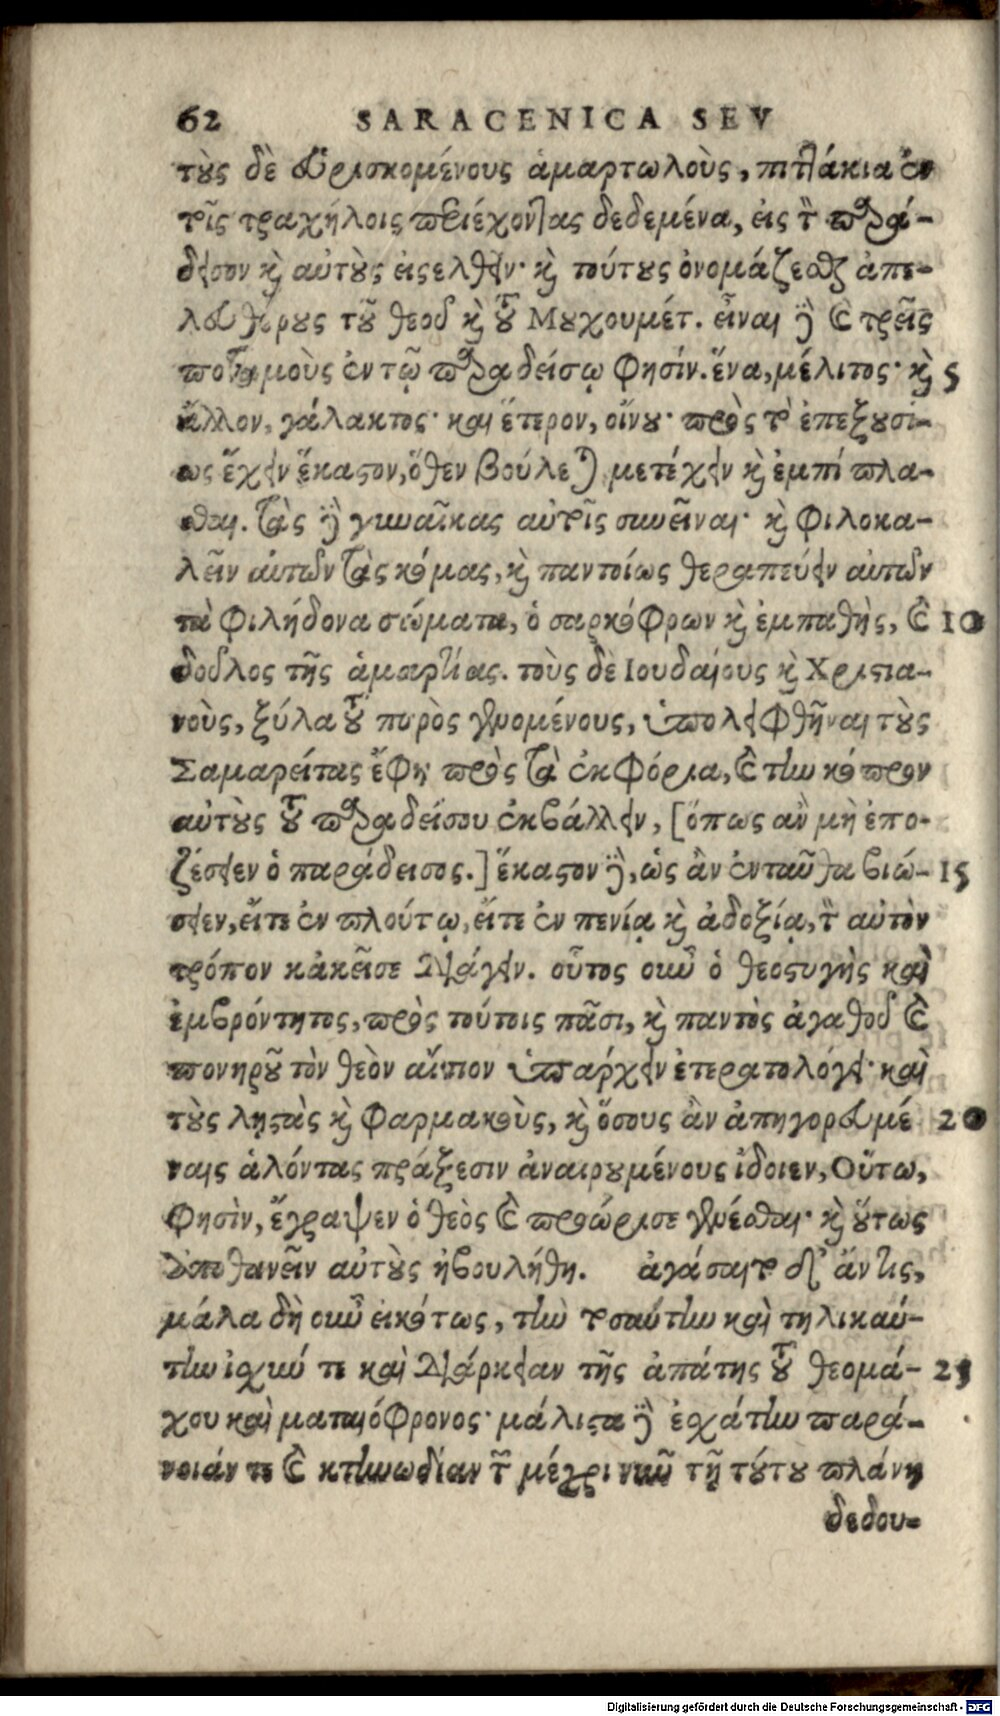 62 SARACENICA SEV
τοὺς δὲ εὑρισκομένους ἁμαρτωλοὺς, πιττάκια ἐν
τοῖς τραχήλοις περιέχοντας δεδεμένα, εἰς τὸν παρά-
δεισον καὶ αὐτοὺς εἰσελθεῖν· καὶ τούτους ὀνομάζεσθαι ἀπε-
λευθέρους τοῦ θεοῦ καὶ τοῦ Μουχουμέτ. εἶναι δὲ καὶ τρεῖς
ποταμοὺς ἐν τῷ παραδείσῳ φησίν. ἕνα, μέλιτος· καὶ 5
ἄλλον, γάλακτος· καὶ ἕτερον, οἴνου· πρὸς τὸ ἐπεξουσί-
ως ἔχειν ἕκαστον, ὅθεν βούλεται μετέχειν καὶ ἐμπίπλα-
σθαι. τὰς δὲ γυναῖκας αὐτοῖς συνεῖναι· καὶ φιλοκα-
λεῖν αὐτῶν τὰς κόμας, καὶ παντοίως θεραπεύειν αὐτῶν
τὰ φιλήδονα σώματα, ὁ σαρκόφρων καὶ ἐμπαθὴς, καὶ 10
δοῦλος τῆς ἁμαρτίας. τοὺς δὲ Ιουδαίους καὶ Χριστια-
νοὺς, ξύλα τοῦ πυρὸς γενομένους, ὑπολειφθῆναι τοὺς
Σαμαρείτας ἔφη πρὸς τὰ ἐκφόρια, καὶ τὴν κόπρον
αὐτοὺς τοῦ παραδείσου ἐκβάλλειν, [ὅπως ἂν μὴ ἐπο-
ζέσειεν ὁ παράδεισος.] ἕκαστον δὲ, ὡς ἂν ἐνταῦθα βιώ- 15
σειεν, εἴτε ἐν πλούτῳ, εἴτε ἐν πενίᾳ καὶ ἀδοξίᾳ, τὸν αὐτὸν
τρόπον κἀκεῖσε διάγειν. οὗτος οὖν ὁ θεοστυγὴς καὶ
ἐμβρόντητος, πρὸς τούτοις πᾶσι, καὶ παντὸς ἀγαθοῦ καὶ
πονηροῦ τὸν θεὸν αἴτιον ὑπάρχειν ἐτερατολόγει· καὶ
τοὺς λῃστὰς καὶ φαρμακοὺς, καὶ ὅσους ἂν ἀπηγορευμέ 20
ναις ἁλόντας πράξεσιν ἀναιρουμένους ἴδοιεν, Οὕτω,
φησὶν, ἔγραψεν ὁ θεὸς καὶ προώρισε γενέσθαι· καὶ οὕτως
ἀποθανεῖν αὐτοὺς ἠβουλήθη. ἀγάσαιτο δ' ἄν τις,
μάλα δὴ οὖν εἰκότως, τὴν τοσαύτην καὶ τηλικαύ-
την ἰσχύν τε καὶ διάρκειαν τῆς ἀπάτης τοῦ θεομά- 25
χου καὶ ματαιόφρονος· μάλιστα δὲ ἐσχάτην παρά-
νοιάν τε καὶ κτηνωδίαν τῶν μέχρι νῦν τῇ τούτου πλάνῃ
δεδου-
Digitalisierung gefördert durch die Deutsche Forschungsgemeinschaft - DFG